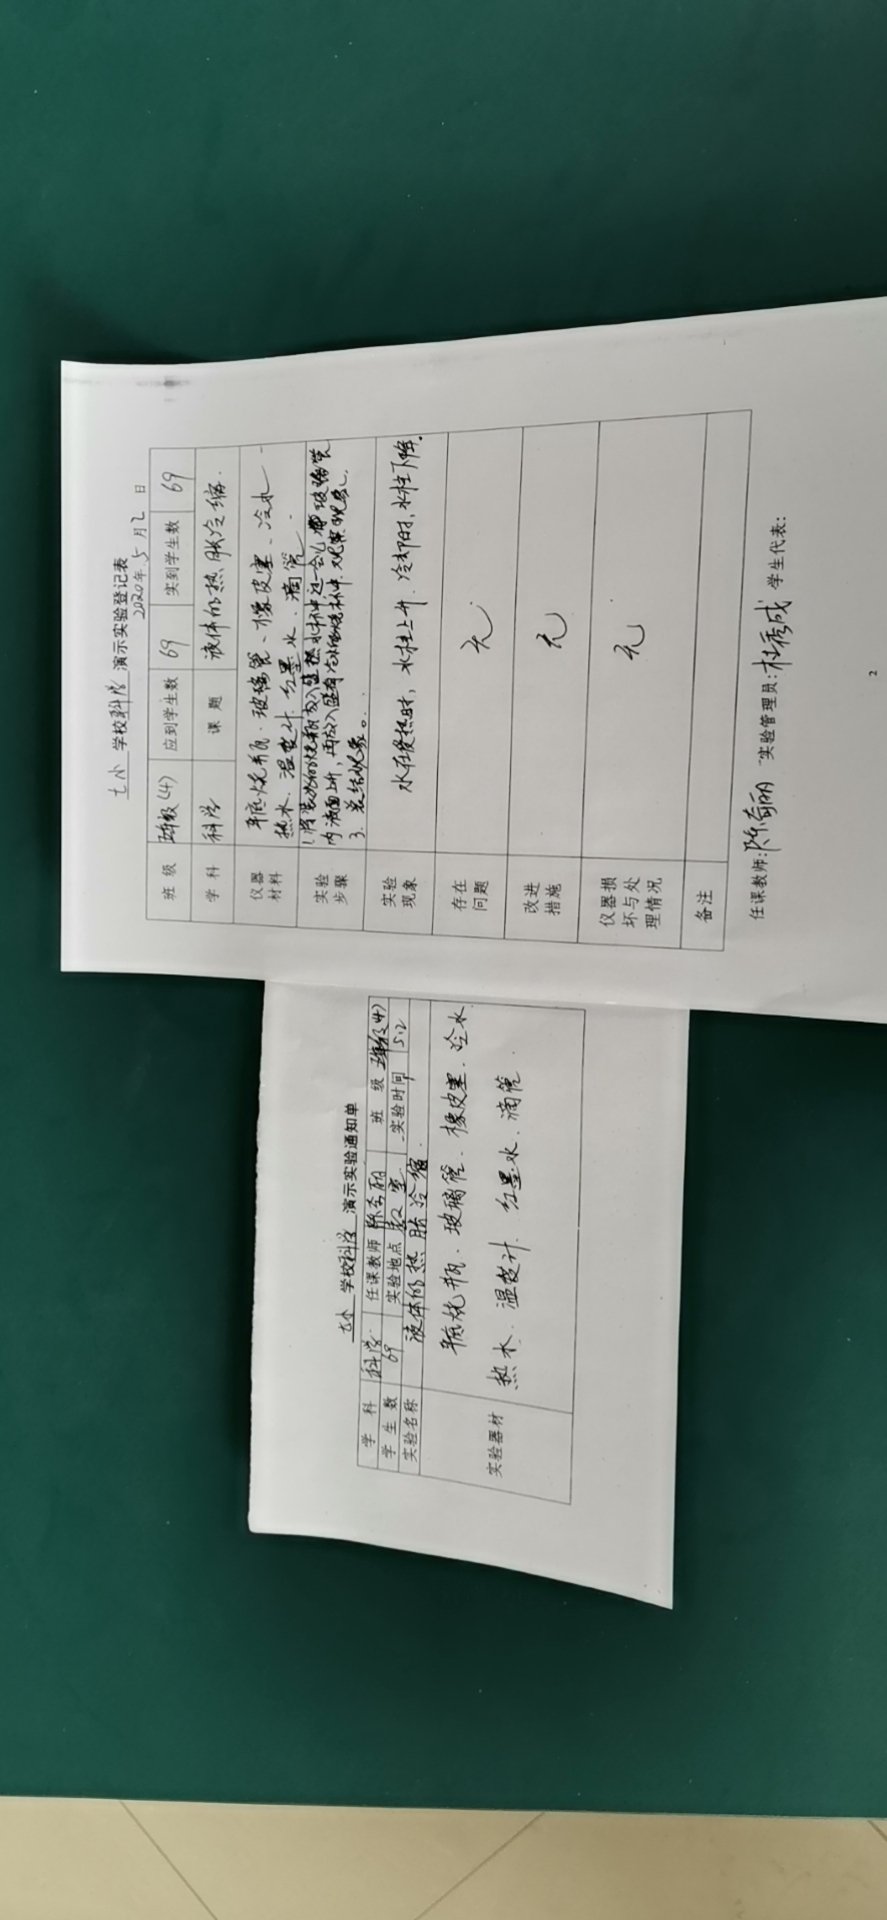 七小 学校科学 演示实验登记表
2020年5月2日
班级 五年级(4) 应到学生数 69 实到学生数 69
学科 科学 课题 液体的热胀冷缩.
仪器材料 平底烧瓶.玻璃管、橡皮塞、冷水
热水.温度计.红墨水.滴管.
实验步骤
内液面上升,再放入
3.总结现象。
实验现象 水在受热时,水柱上升.冷却时,水柱下降.
存在问题 无
改进措施 无
仪器损坏与处理情况 无
备注
任课教师: 实验管理员:杜秀成 学生代表:
2
七小 学校科学 演示实验通知单
学科 科学 任课教师 班级 五年级(4)
学生数 69 实验地点 教室 实验时间 5.2
实验名称 液体的热胀冷缩.
实验器材 平底烧瓶.玻璃管.橡皮塞.冷水
热水.温度计.红墨水.滴管.